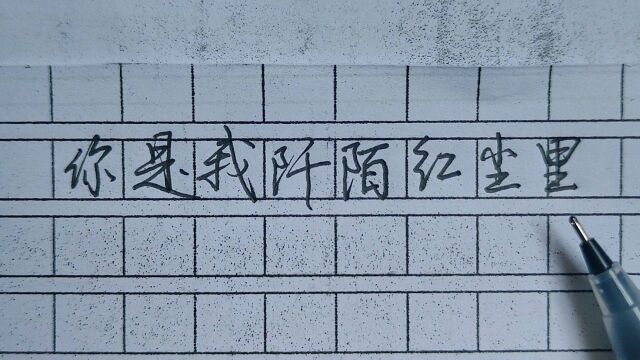 你是我阡陌红尘里